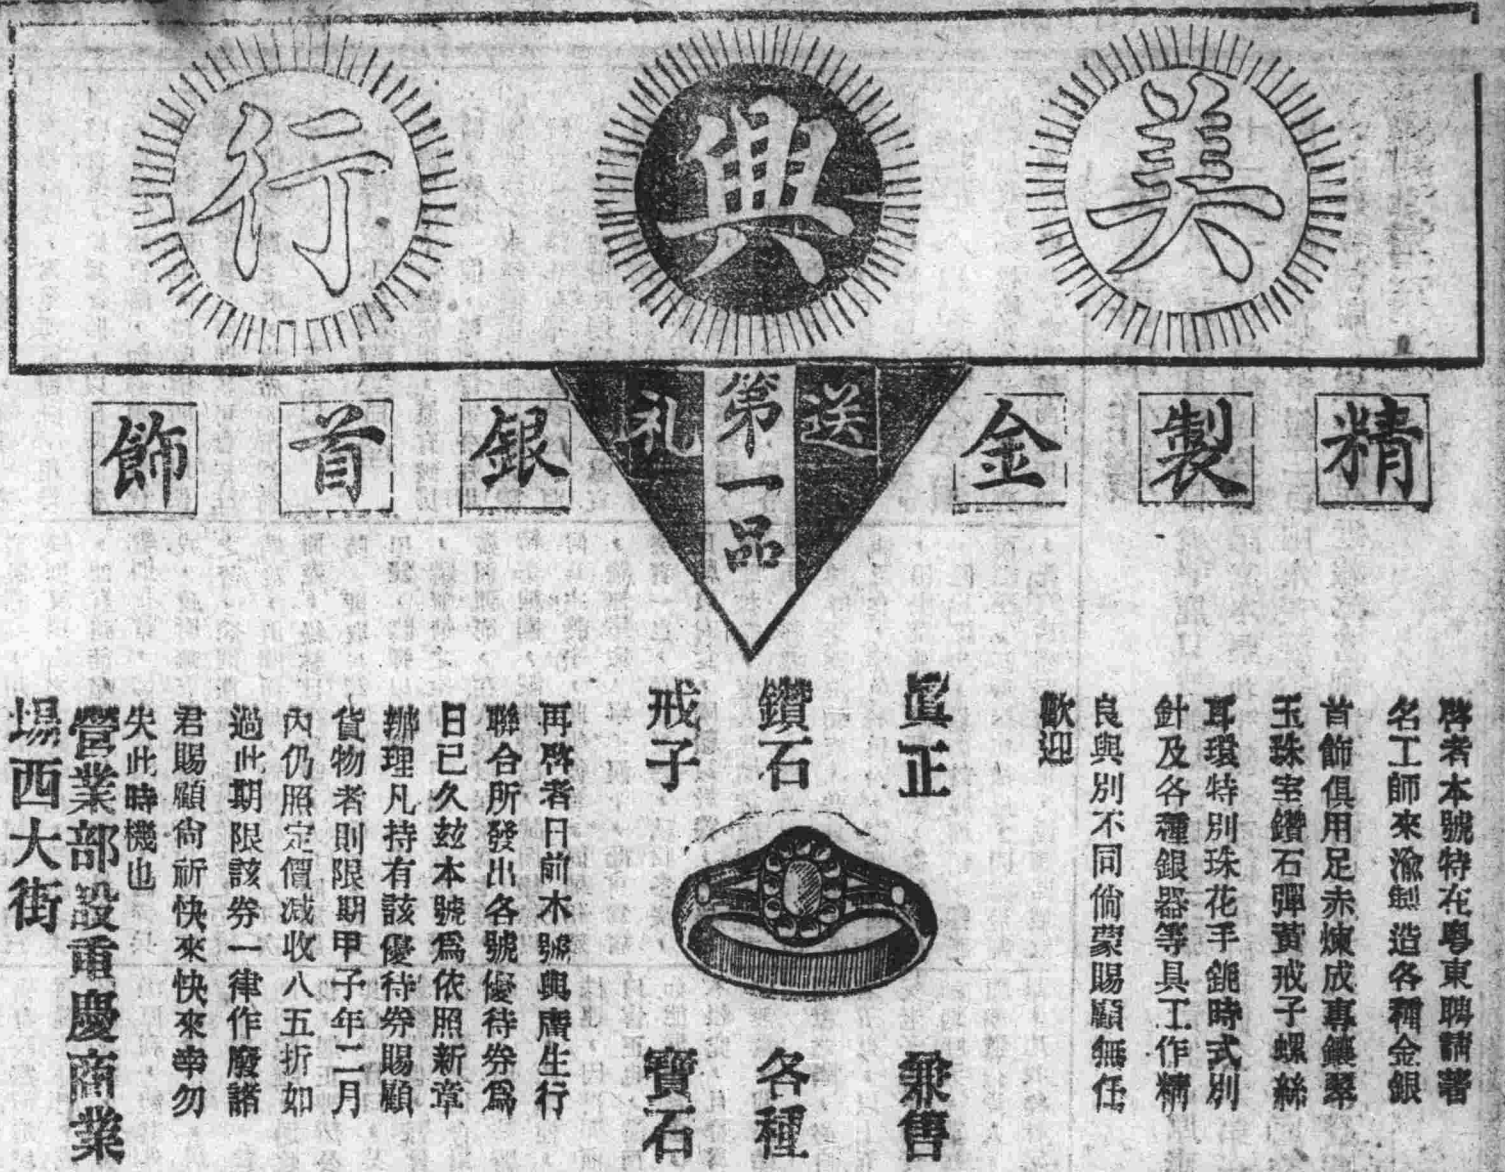 美興行
送礼
第一品
精製金銀首飾
啓者本號特在粵東聘請著
名工師來渝製造各種金銀
首飾俱用足赤煉成專鑲翠
玉珠宝鑽石彈簧戒子螺絲
耳環特別珠花手鈪時式別
針及各種銀器等具工作精
良與別不同倘蒙賜顧無任
歡迎
眞正
鑽石
戒子
兼售
各種
寶石
再啓者日前本號與廣生行
聯合所發出各號優待券爲
日已久玆本號爲依照新章
辦理凡持有該優待券賜顧
貨物者則限期甲子年二月
內仍照定價減收八五折如
過此期限該券一律作廢諸
君賜顧尙祈快來快來幸勿
失此時機也
營業部設重慶商業
場西大街